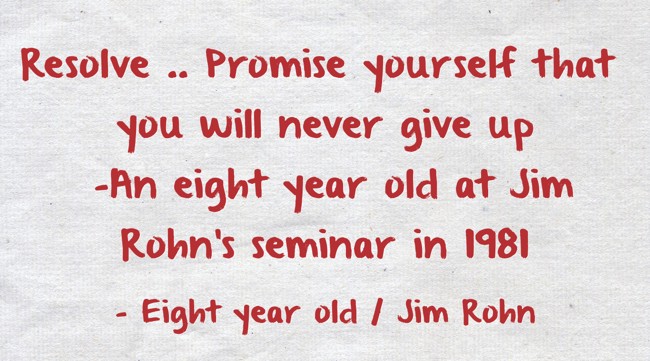 Resolve .. Promise yourself that
you will never give up
-An eight year old at Jim
Rohn's seminar in 1981
- Eight year old / Jim Rohn